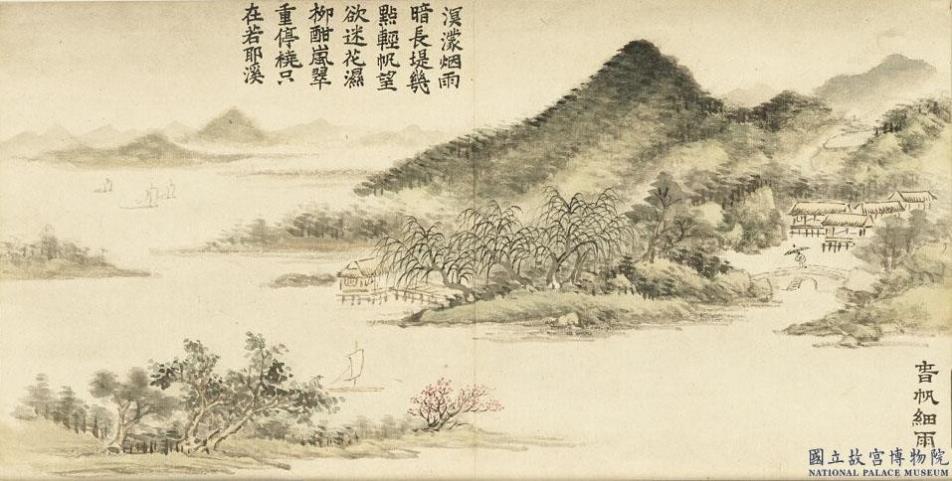 溟濛烟雨
暗長堤幾
點輕帆望
欲迷花濕
柳酣嵐翠
重停橈只
在若耶溪
旾帆細雨
國立故宮博物院
NATIONAL PALACE MUSEUM